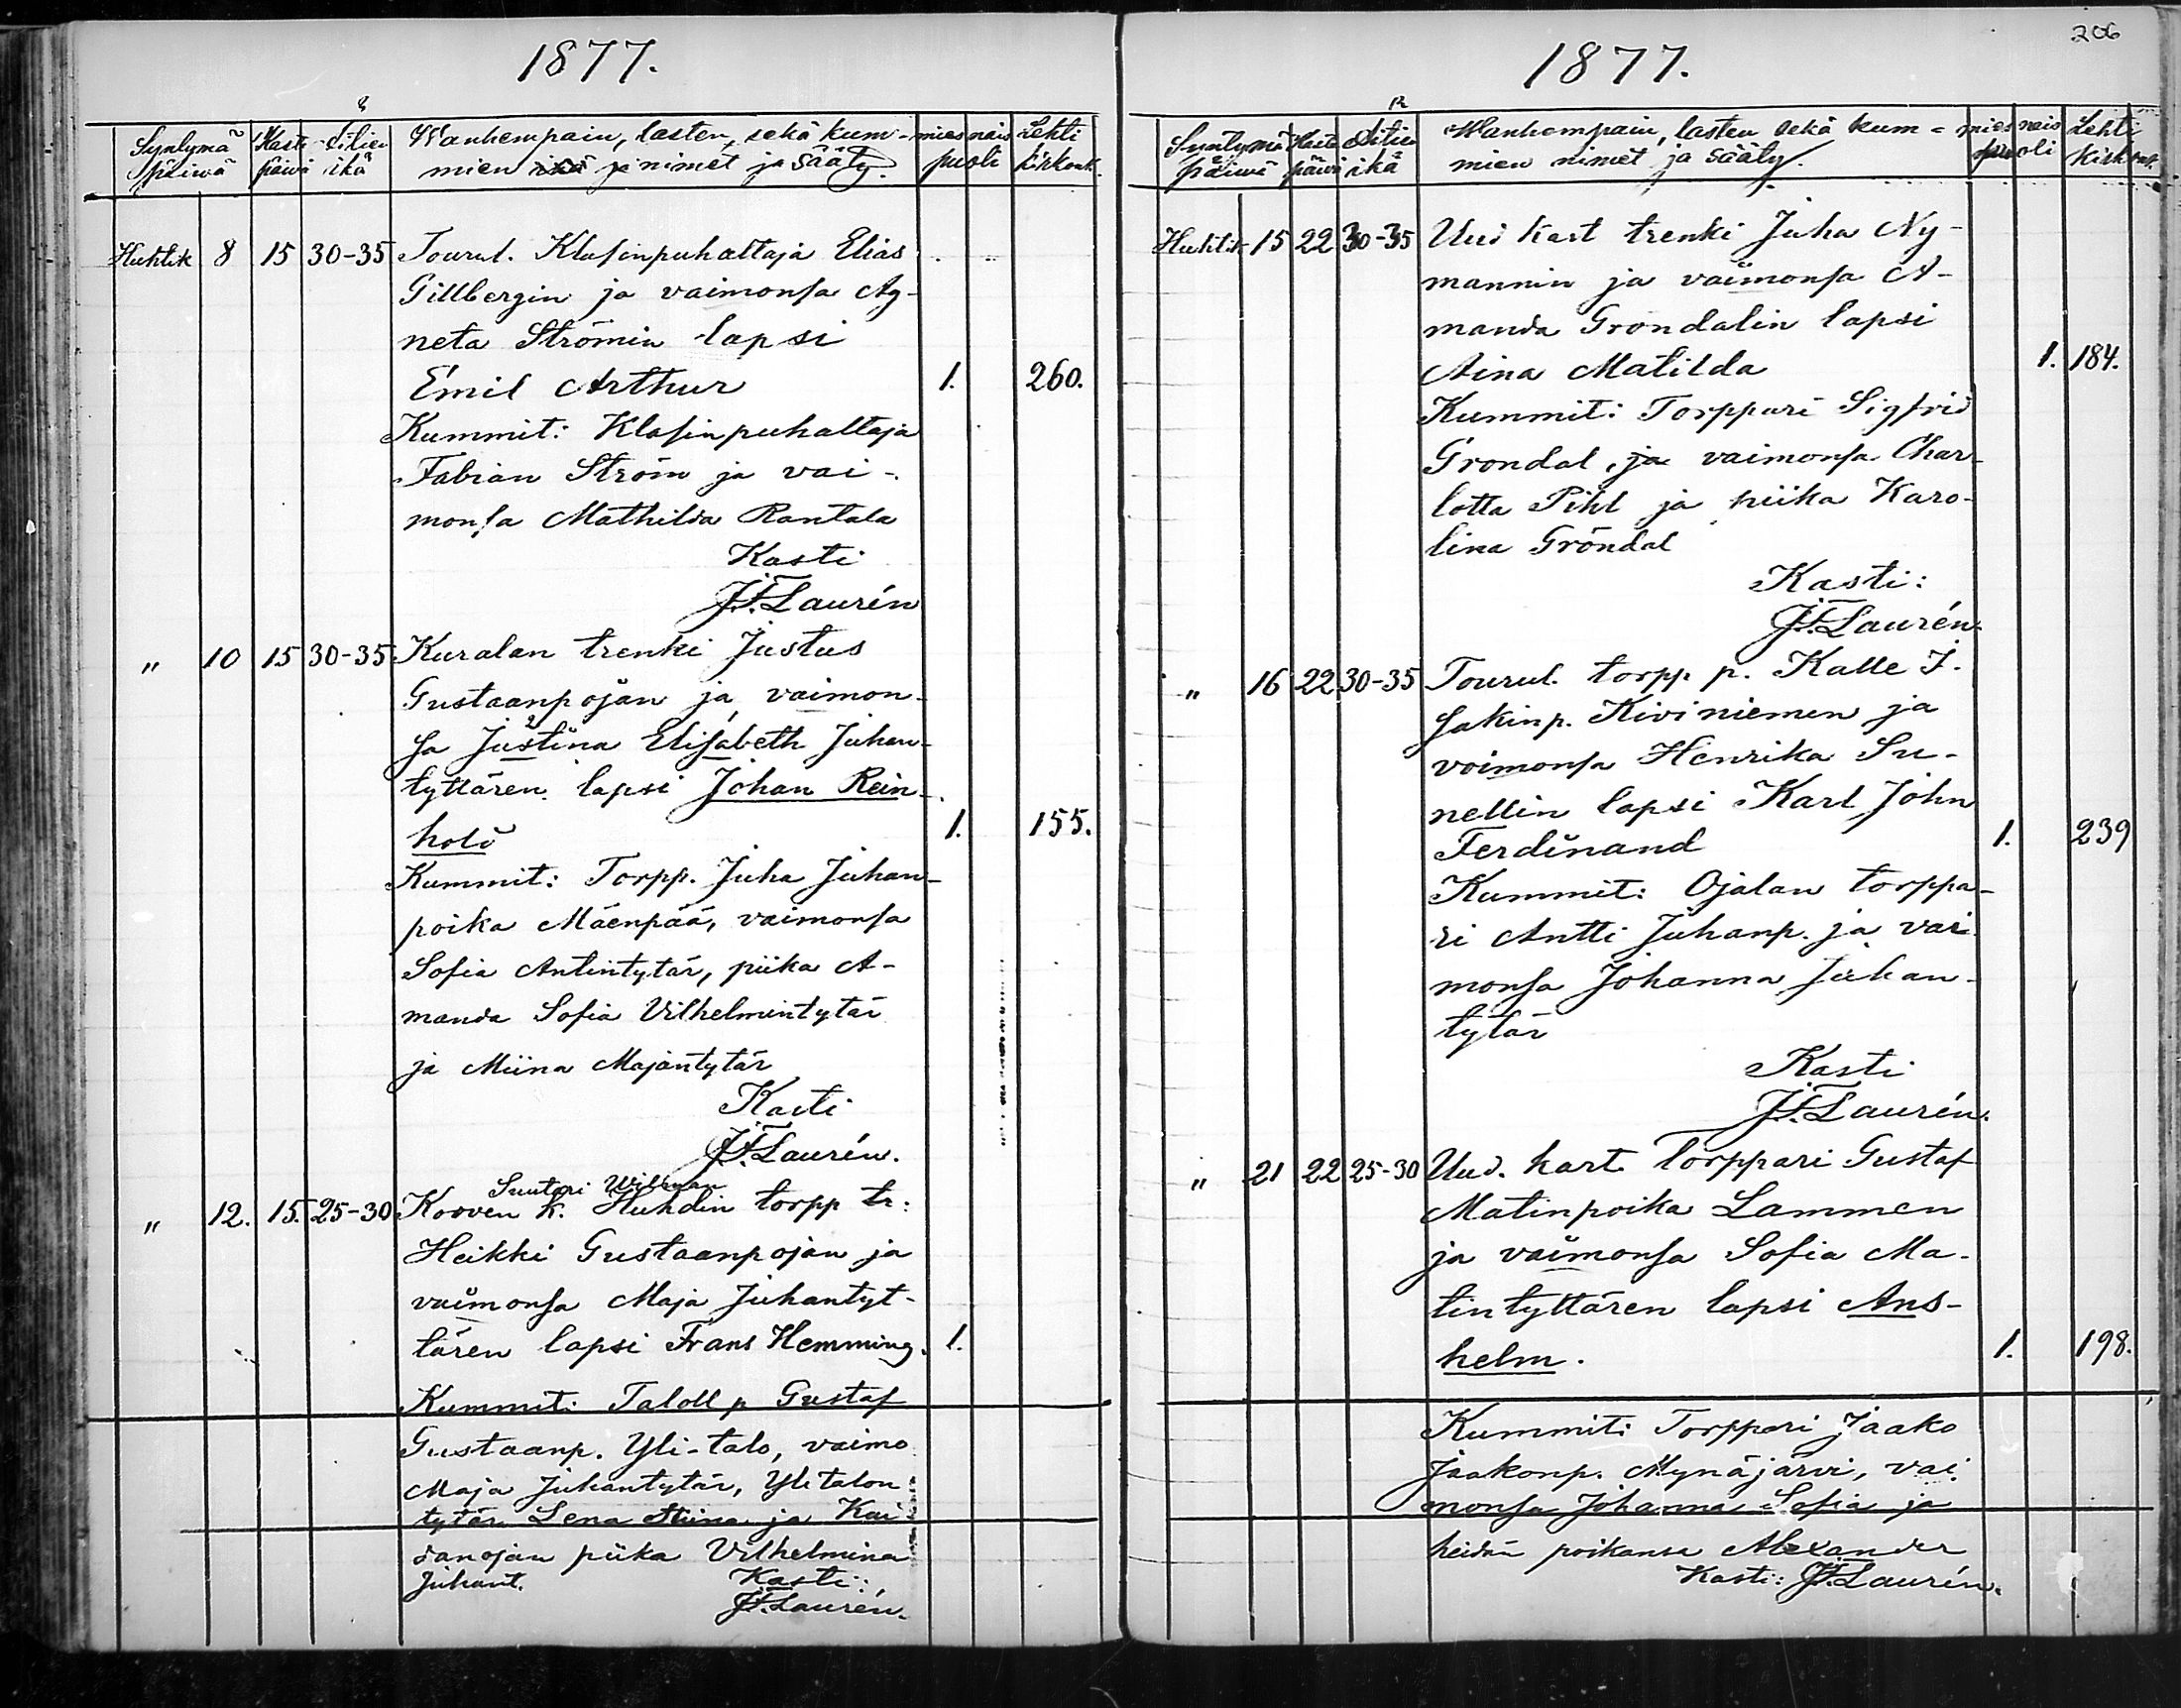 1877.
Syntymä päiwä
Kaste päivä
Äitien ikä
Wanhempain, lasten, sekä kum-
mien nimet ja sääty.
mies nais
puoli
Lehti
kirkonk.
Huhtik 8 15 30-35 Tourul. Klasinpuhaltaja Elias
Gillbergin ja vaimonsa Ag-
neta Strömin lapsi
Emil Arthur 1. 260.
Kummit: Klasinpuhaltaja
Fabian Ström ja vai-
monsa Mathilda Rantala
Kasti
J.F. Laurén
" 10 15 30-35 Kuralan trenki Justus
Gustaanpojan ja vaimon-
sa Justina Elisabeth Juhan-
tyttären lapsi Johan Rein-
hold 1. 155.
Kummit: Torpp. Juha Juhan-
poika Mäenpää, vaimonsa
Sofia Antintytär, piika A-
manda Sofia Vilhelmintytär
ja Miina Majantytär
Kasti
J.F. Laurén.
Suutari Willman
" 12. 15. 25-30 Korven k. Huhdin torpp tr:
Heikki Gustaanpojan ja
vaimonsa Maja Juhantyt-
tären lapsi Frans Hemming. 1.
Kummit: Taloll p Gustaf
Gustaanp. Yli-talo, vaimo
Maja Juhantytär, Ylitalon
tytär Lena Stiina ja Kai
danojan piika Vilhelmina
Juhant. Kasti:
J.F. Laurén.
206
1877.
Syntymä päiwä
Kaste päivä
Äitien ikä
Wanhempain, lasten sekä kum=
mien nimet ja sääty.
mies nais
puoli
Lehti
Kirkonk.
Huhtik 15 22 30-35 Uud kart trenki Juha Ny-
mannin ja vaimonsa A-
manda Grondalin lapsi
Aina Matilda 1. 184.
Kummit: Torppari Sigfrid
Grondal, ja vaimonsa Char-
lotta Pihl ja piika Karo-
lina Gröndal
Kasti:
J.F. Laurén.
" 16 22 30-35 Tourul. torpp p. Kalle I-
sakinp. Kiviniemen ja
vaimonsa Henrika Su-
nellin lapsi Karl John
Ferdinand 1. 239
Kummit: Ojalan torppa-
ri Antti Juhanp. ja vai
monsa Johanna Juhan-
tytär
Kasti
J.F. Laurén.
" 21 22 25-30 Uud. kart. Torppari Gustaf
Matinpoika Lammen
ja vaimonsa Sofia Ma-
tintyttären lapsi Ans-
helm. 1. 198.
Kummit: Torppari Jaako
Jaakonp. Mynäjärvi, vai
monsa Johanna Sofia ja
heidän poikansa Alexander
Kasti: J.F. Laurén.